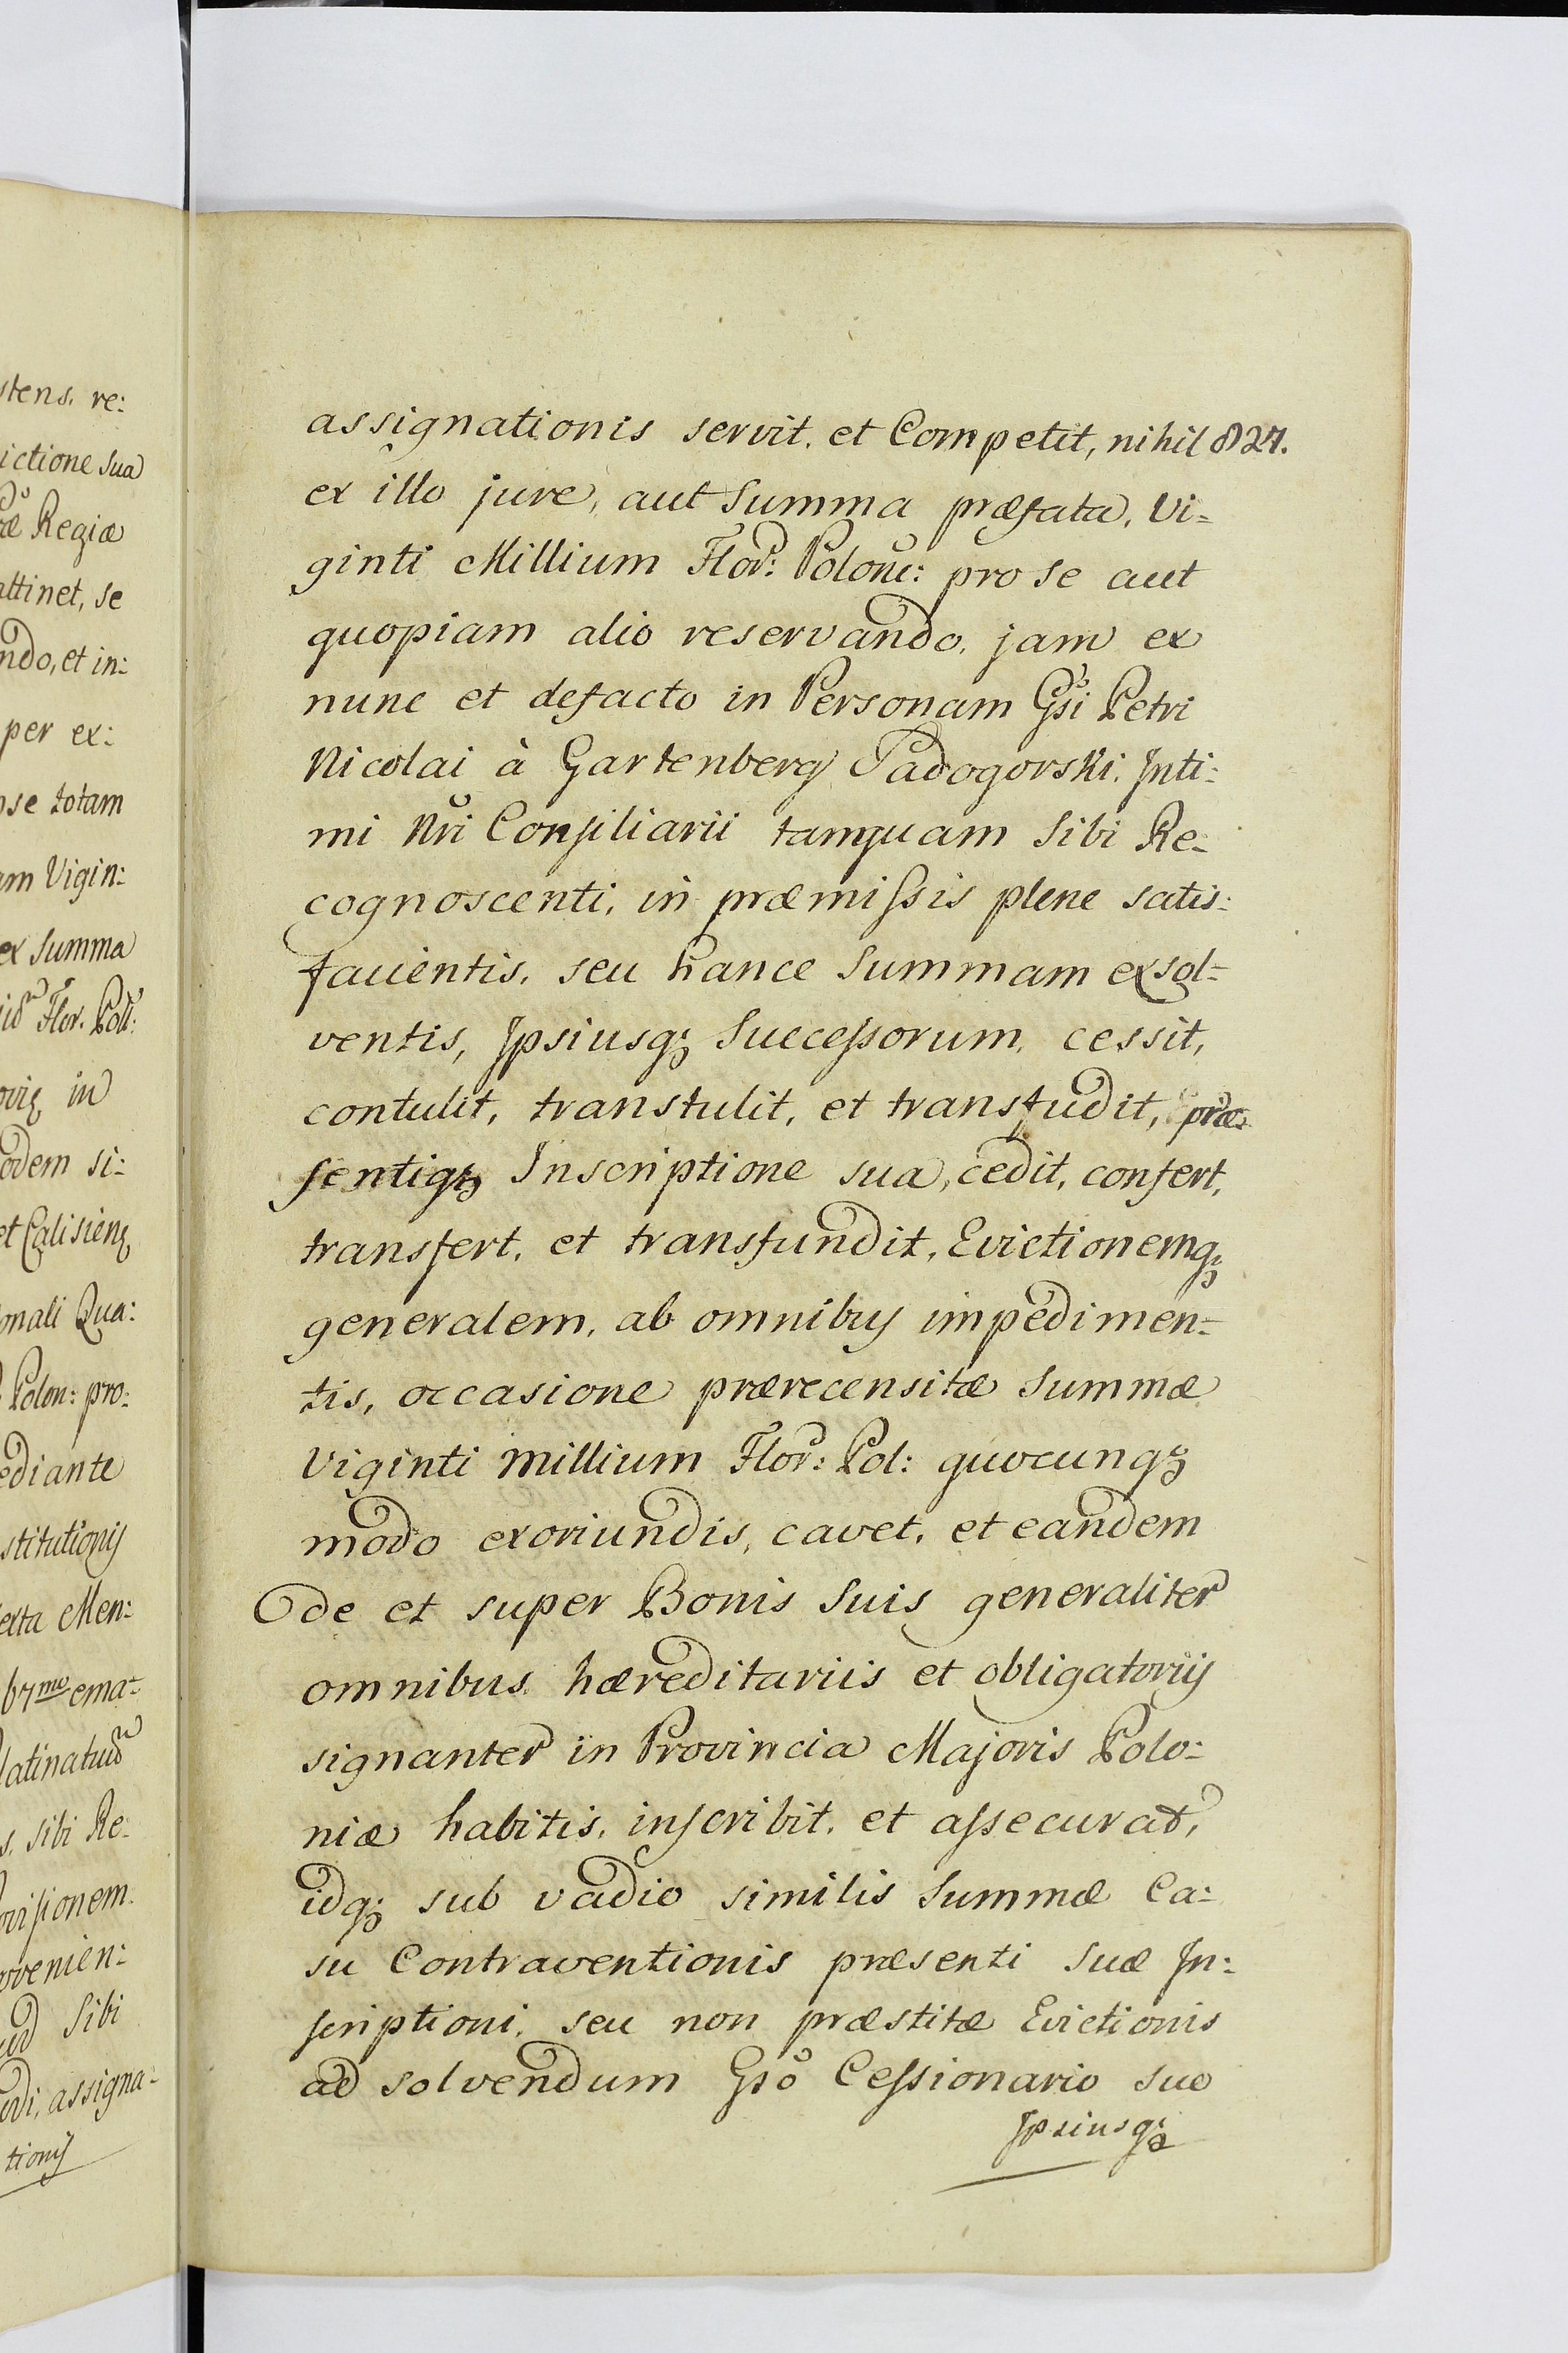 stens. re:
ictione sua
æ Regiæ
attinet, se
ndo, et in:
per ex:
se totam
am Vigin:
ex Summa
Flor. Poll:
in
odem si:
et Calisienş
onali Qua:
Polon: pro:
ediante
stitutionis
exta Men:
67mo ema-
latinatuũ
s. sibi Re:
ovisionem.
ovenien:
sibi
odi, assigna-
tionis
assignationis servit. et Competit, nihil 827.
ex illo jure, aut Summa præfata, Vi=
ginti Millium Flor: Polonc: pro se aut
quopiam alio reservando, jam ex
nunc et defacto in Personam Gsi Petri
Nicolai à Gartenberg Sadogorski. Inti:
mi Nri Consiliarii tamquam Sibi Re:
cognoscenti, in præmissis plene satis:
facientis, seu hance Summam exsol=
ventis, Ipsiusq; Successorum, cessit,
contulit, transtulit, et transfudit, præ=
sentiq; Inscriptione sua, cedit, confert,
transfert, et transfundit, Evictionemq;
generalem, ab omnibus impedimen=
tis, occasione prærecensitæ Summæ
Viginti Millium Flor: Pol: quocunq;
modo exoriundis, cavet, et eandem
de et super Bonis Suis generaliter
omnibus hæreditariis et obligatoriis
signanter in Provincia Majoris Polo:
niæ habitis, inscribit, et assecurat,
idq; sub vadio similis Summæ Ca:
su Contraventionis præsenti Suæ In:
scriptioni, seu non præstitæ Evictionis
ad solvendum Gso Cessionario suo
Ipsiusq;